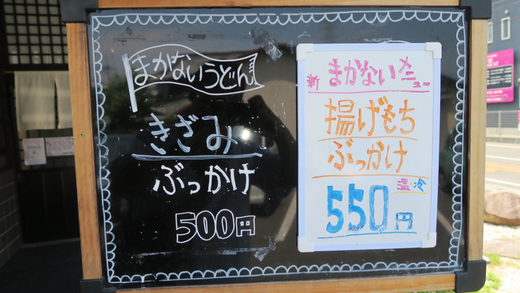 まかないうどん!
きざみ
ぶっかけ
500円
新 まかないメニュー
揚げもち
ぶっかけ
温 冷
550円